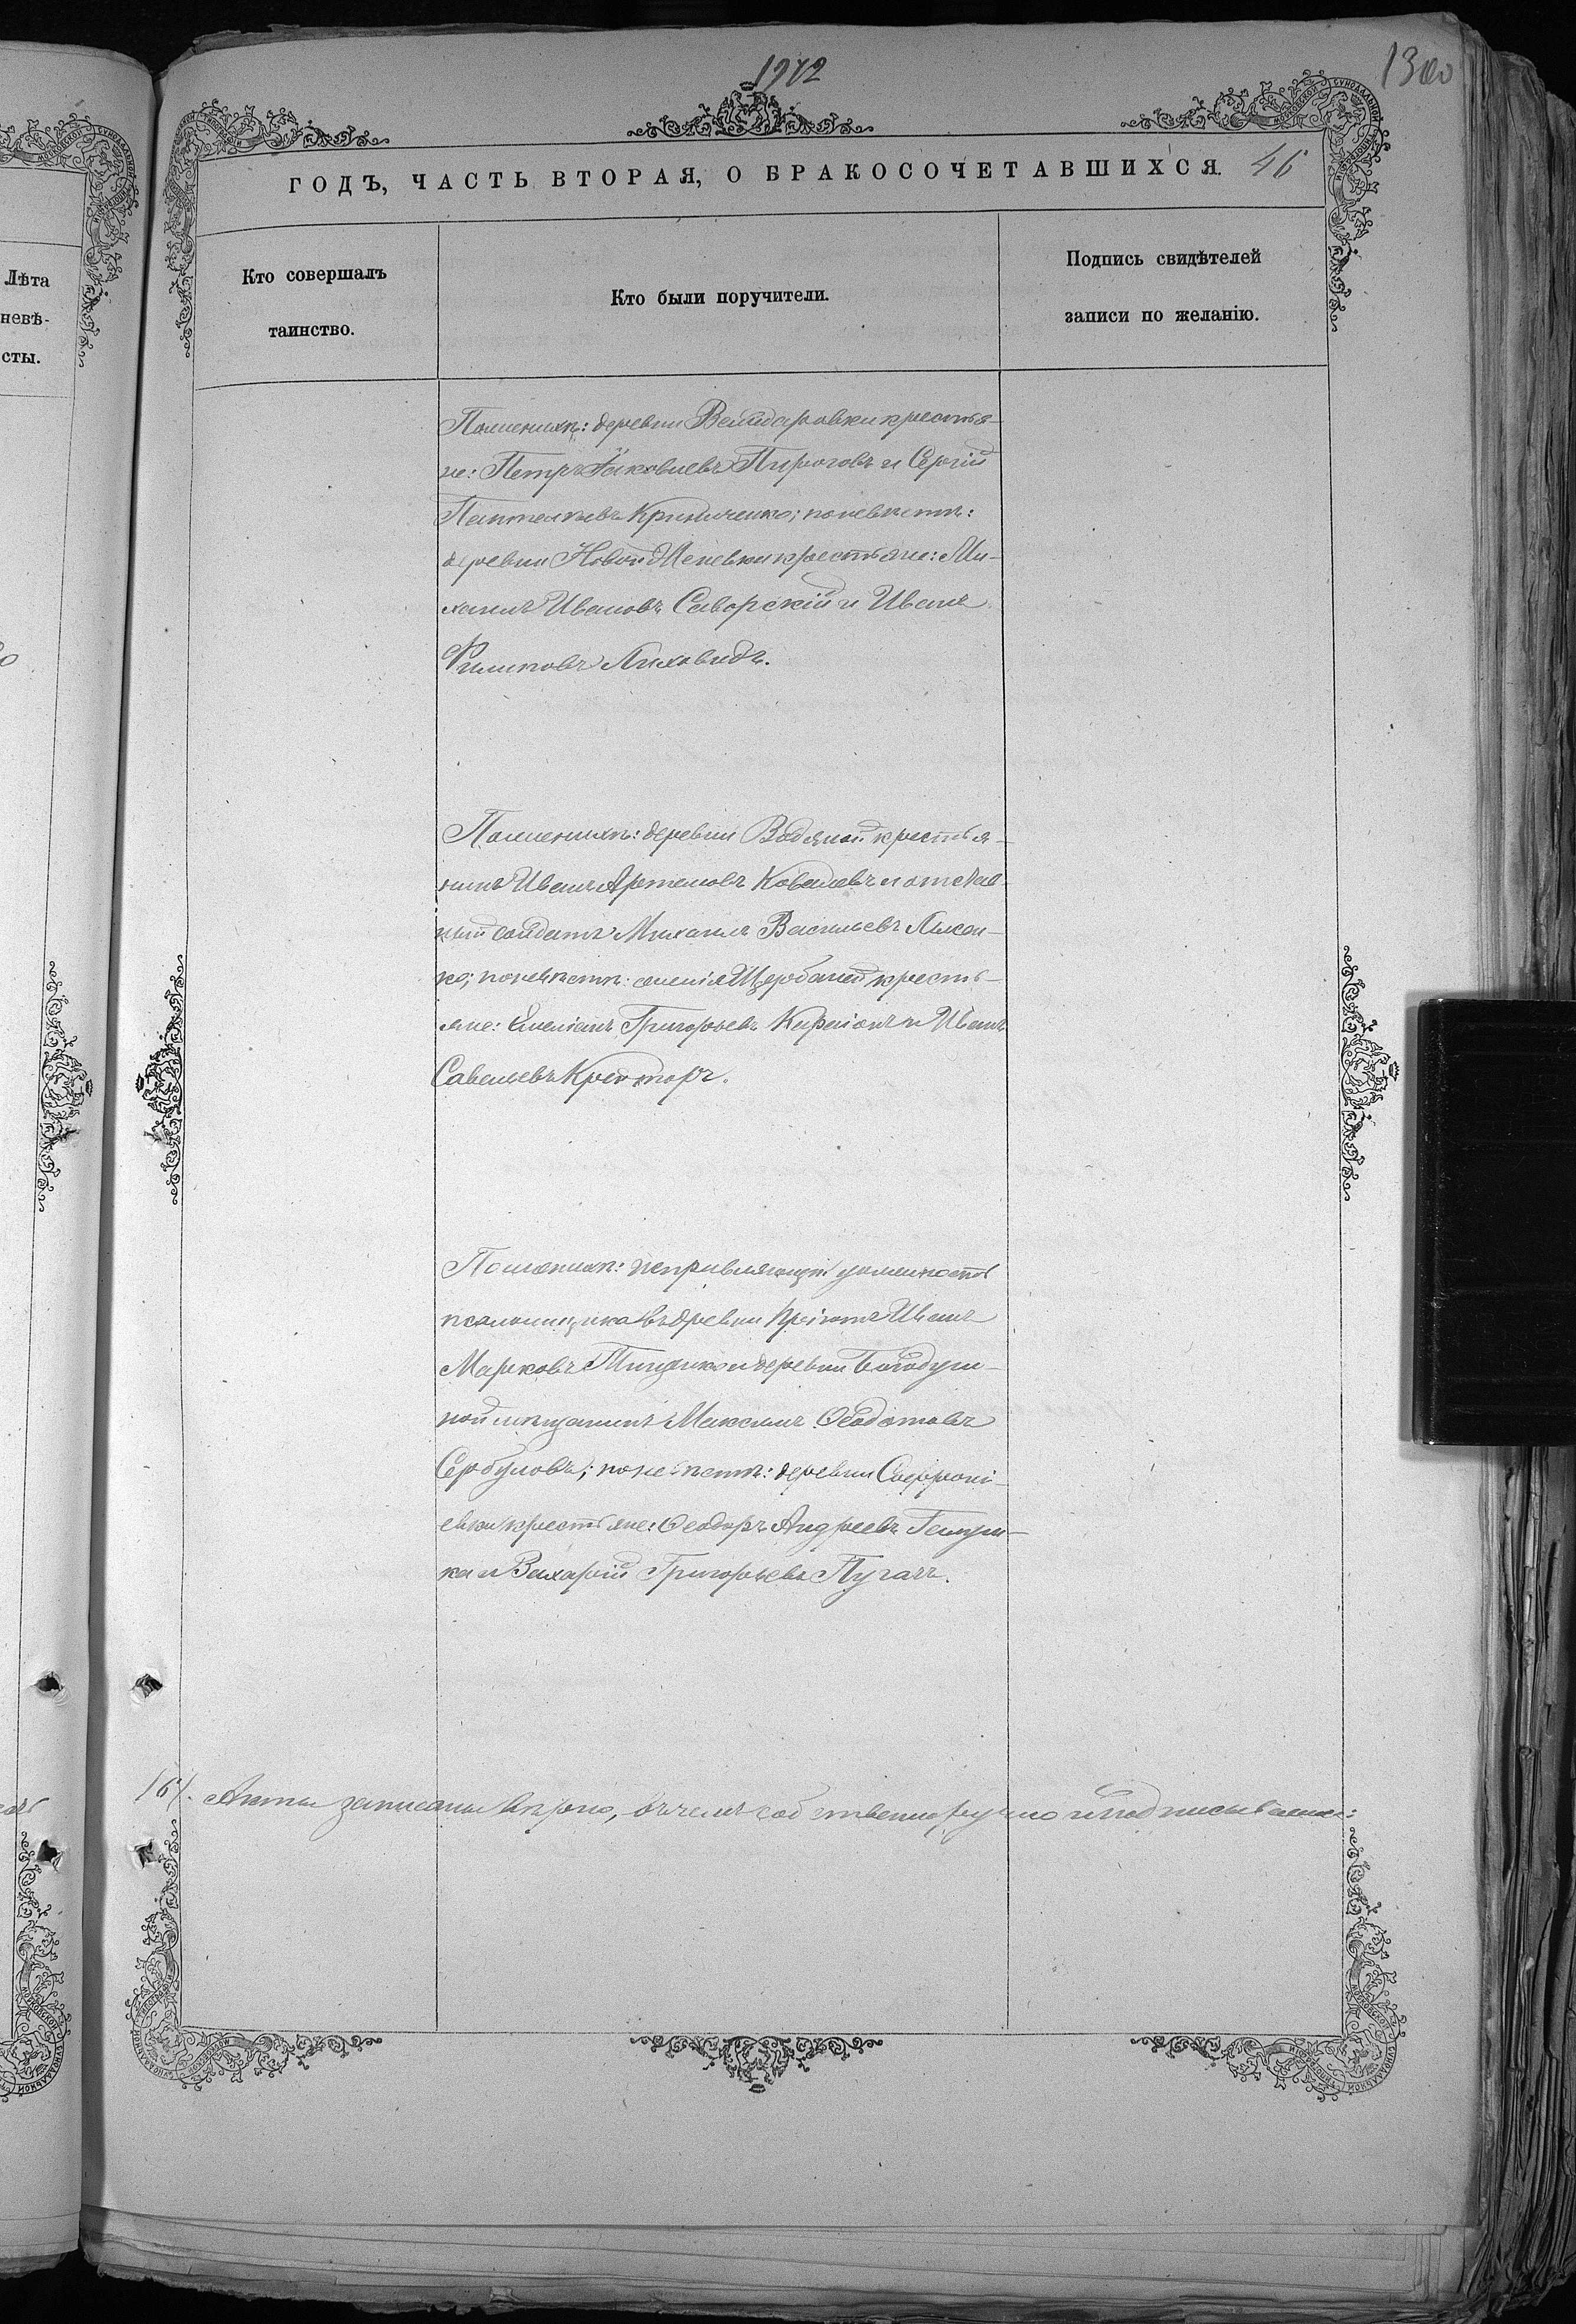 1912
1300
ГОДЪ, ЧАСТЬ ВТОРАЯ, О БРАКОСОЧЕТАВШИХСЯ. 46
Лѣта
невѣ-
сты.
Кто совершалъ
таинство.
Кто были поручители.
Подпись свидѣтелей
записи по желанію.
По женихѣ: деревни крестья-
не: Петръ Яковлевъ Пироговъ и Сергій
Пантелѣевъ Криниченко; по невѣстѣ:
деревни Новой крестьяне: Ми-
хаилъ Ивановъ Саворскій и Иванъ
Филиповъ Лиховидъ.
По женихѣ: деревни Водяной крестья-
нинъ Иванъ Артемовъ Ковалевъ и отстав-
ный солдатъ Михаилъ Васильевъ
ко; по невѣстѣ: селенія Щербаней кресть-
яне: Емеліанъ Григорьевъ и Иванъ
Савельевъ
По женихѣ: исправляющій должность
псаломщика въ деревни Иванъ
Марковъ Тищенко и деревни
ной мѣщанинъ Максимъ Ѳеодотовъ
Сербуловъ; по невѣстѣ: деревни Софроні-
евки крестьяне: Ѳеодоръ Андреевъ
ка и Захарій Григорьевъ Пугачъ.
Акты записаны вѣрно, въ чемъ собственноручно и подписываемся: